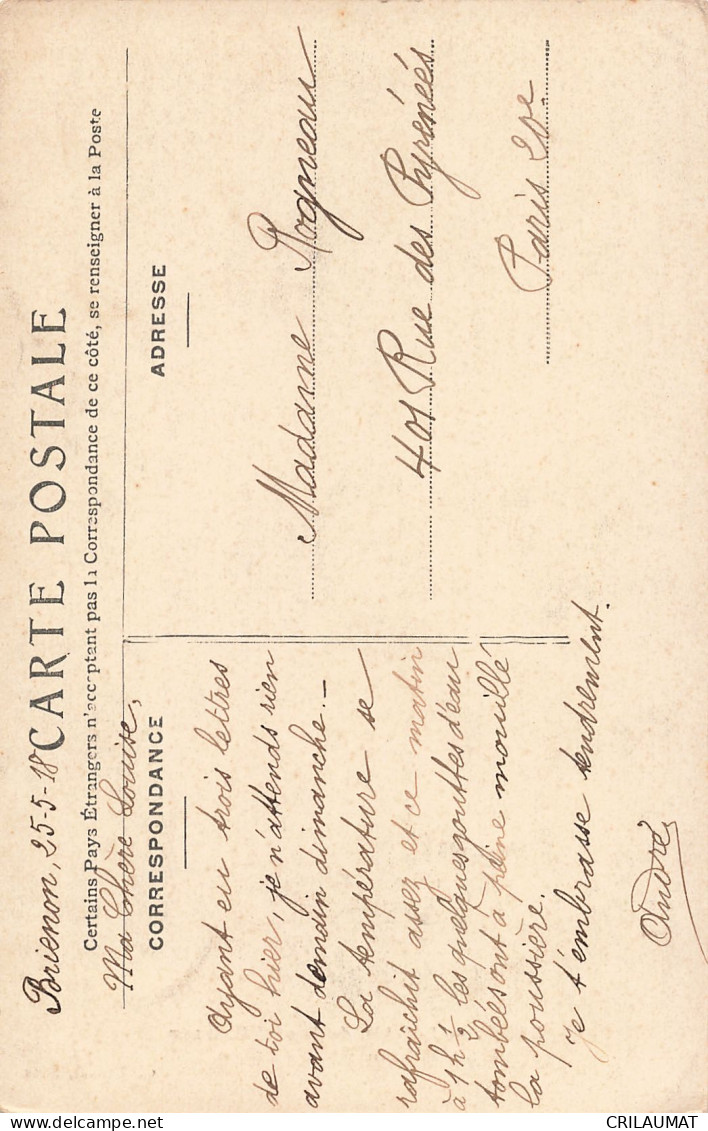 CARTE POSTALE
Certains Pays Étrangers n'acceptant pas la Correspondance de ce côté, se renseigner à la Poste
CORRESPONDANCE
Brienon, 25-5-18
Ma Chère Louise,
Ayant eu trois lettres
de toi hier, je n'attends rien
avant demain dimanche. _
La température se
rafraîchit assez et ce matin
à 1h 1/2 les quelques gouttes d'eau
tombées ont à peine mouillé
la poussière.
Je t'embrasse tendrement.
André
ADRESSE
Madame Rogneau
401 Rue des Pyrénées
Paris 20e
CRILAUMAT